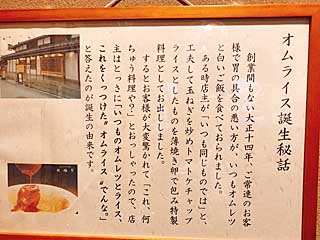 オムライス誕生秘話
創業間もない大正十四年、ご常連のお客
様で胃の具合の悪い方が、いつもオムレツ
と白いご飯を食べておられました。
ある時店主が「いつも同じものでは」と、
工夫して玉ねぎを炒めトマトケチャップ
ライスとしたものを薄焼き卵で包み特製
料理としてお出ししました。
するとお客様が大変驚かれて「これ、何
ちゅう料理や?」とおっしゃったので、店
主はとっさに「いつものオムレツとライス、
これをくっつけた〝オムライス〟でんな。」
と答えたのが誕生の由来です。